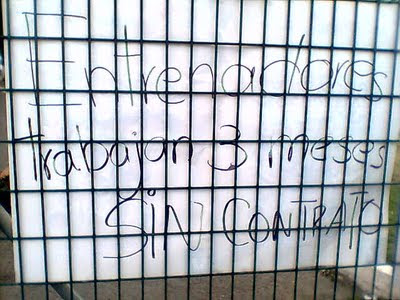 Entrenadores
trabajan 3 meses
SIN CONTRATO